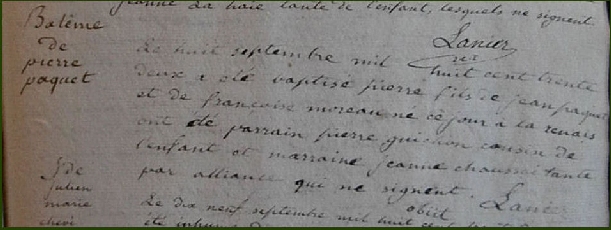 jeanne La haie tante de l'enfant, lesquels ne signent.
Lanier
Batême
de
pierre
paquet
Le huit septembre mil huit cent trente
deux a été baptisé pierre fils de jean paquet
et de françoise moreau né ce jour à la
ont été parrain pierre guichon cousin de
l'enfant et marraine jeanne tante
par alliance qui ne signent. Lanier
S. de
julien
marie
Le dix neuf septembre mil huit cent
été